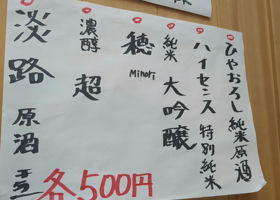 ひやおろし 純米原酒
ハイセンス 特別純米
純米 大吟醸
穂 Minori
濃醇 超
淡路 原酒
各500円